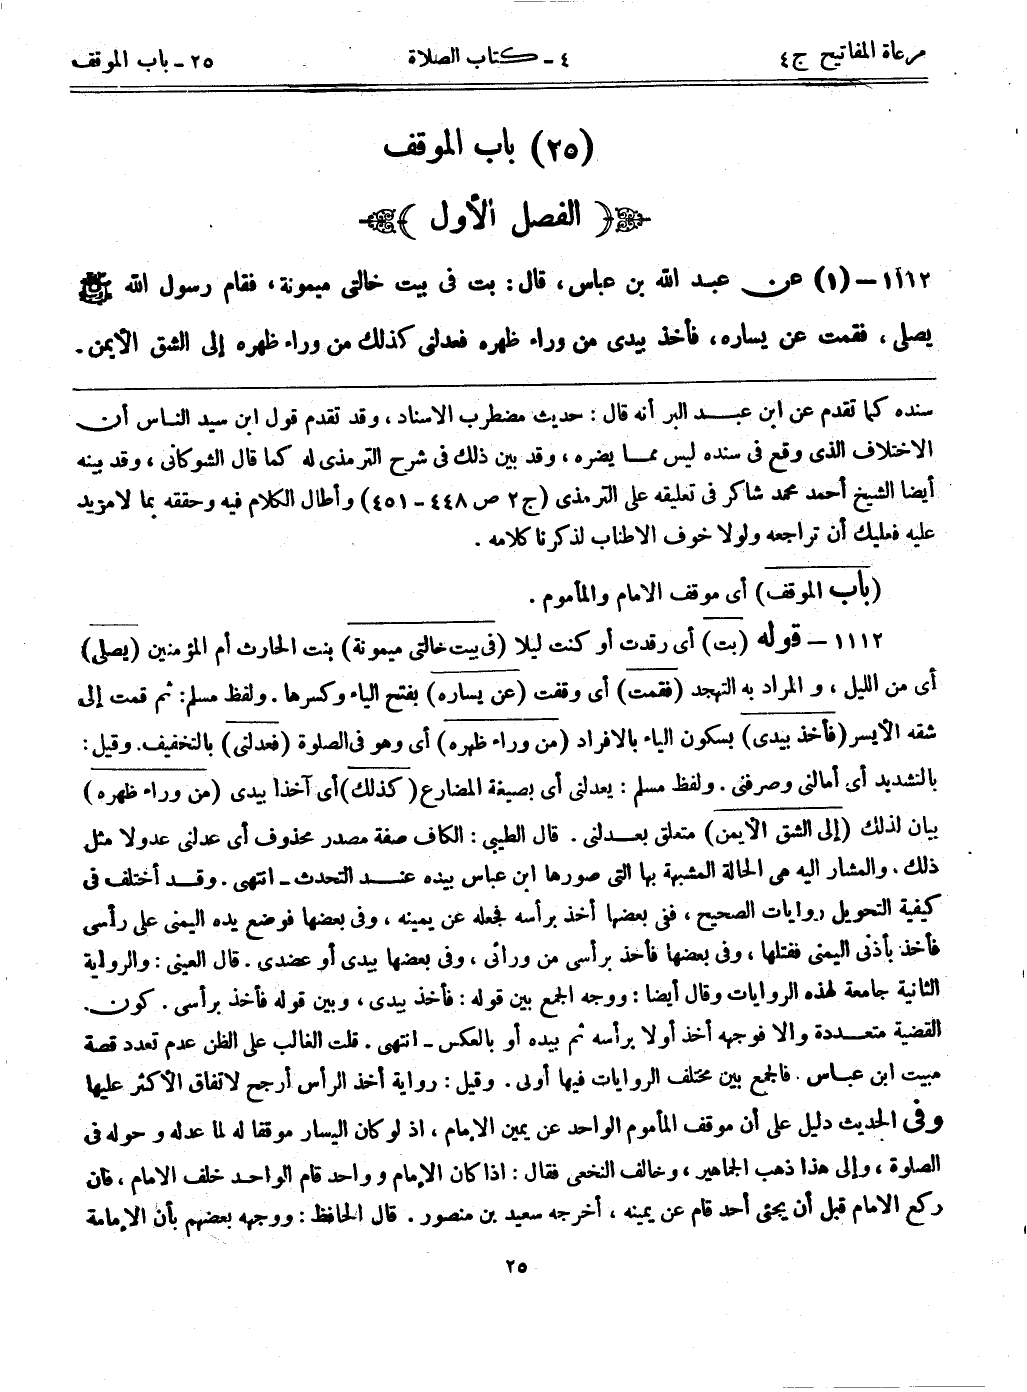 مرعاة المفاتيح ج٤
٤ - كتاب الصلاة
٢٥ - باب الموقف
(٢٥) باب الموقف
﴿ الفصل الأول ﴾
١١١٢ – (١) عن عبد الله بن عباس، قال: بت فى بيت خالتى ميمونة، فقام رسول الله ﷺ
يصلى، فقمت عن يساره، فأخذ بيدى من وراء ظهره فعدلنى كذلك من وراء ظهره إلى الشق الأيمن.
سنده كما تقدم عن ابن عبد البر أنه قال: حديث مضطرب الاسناد، وقد تقدم قول ابن سيد الناس أن
الاختلاف الذى وقع فى سنده ليس مما يضره، وقد بين ذلك فى شرح الترمذى له كما قال الشوكانى، وقد بينه
أيضا الشيخ أحمد محمد شاكر فى تعليقه على الترمذى (ج٢ ص ٤٤٨ - ٤٥١) وأطال الكلام فيه وحققه بما لامزيد
عليه فعليك أن تراجعه ولولا خوف الاطناب لذكرنا كلامه.
(باب الموقف) أى موقف الامام والمأموم.
١١١٢ – قوله (بت) أى رقدت أو كنت ليلا (فى بيت خالتى ميمونة) بنت الحارث أم المؤمنين (يصلى)
أى من الليل، و المراد به التهجد (فقمت) أى وقفت (عن يساره) بفتح الياء وكسرها. ولفظ مسلم: ثم قمت إلى
شقه الأيسر (فأخذ بيدى) بسكون الياء بالافراد (من وراء ظهره) أى وهو فى الصلوة (فعدلنى) بالتخفيف. وقيل:
بالتشديد أى أمالنى وصرفنى. ولفظ مسلم: يعدلنى أى بصيغة المضارع (كذلك) أى آخذا بيدى (من وراء ظهره)
بيان لذلك (إلى الشق الأيمن) متعلق بعدلنى. قال الطيبى: الكاف صفة مصدر محذوف أى عدلنى عدولا مثل
ذلك. والمشار اليه هى الحالة المشبهة بها التى صورها ابن عباس بيده عند التحدث - انتهى. وقد أختلف فى
كيفية التحويل روايات الصحيح، ففى بعضها أخذ برأسه فجعله عن يمينه، وفى بعضها فوضع يده اليمنى على رأسى
فأخذ بأذنى اليمنى ففتلها، وفى بعضها فأخذ برأسى من ورائى، وفى بعضها بيدى أو عضدى. قال العينى: والرواية
الثانية جامعة لهذه الروايات وقال أيضا: ووجه الجمع بين قوله: فأخذ بيدى، وبين قوله فأخذ برأسى. كون
القضية متعددة والا فوجهه أخذ أولا برأسه ثم بيده أو بالعكس - انتهى. قلت الغالب على الظن عدم تعدد قصة
مبيت ابن عباس. فالجمع بين مختلف الروايات فيها أولى. وقيل: رواية أخذ الرأس أرجح لاتفاق الأكثر عليها
وفى الحديث دليل على أن موقف المأموم الواحد عن يمين الإمام، اذ لو كان اليسار موقفا له لما عدله و حوله فى
الصلوة، وإلى هذا ذهب الجماهير، وخالف النخعى فقال: اذا كان الإمام و واحد قام الواحد خلف الامام، فان
ركع الامام قبل أن يجئى أحد قام عن يمينه، أخرجه سعيد بن منصور. قال الحافظ: ووجهه بعضهم بأن الإمامة
٢٥